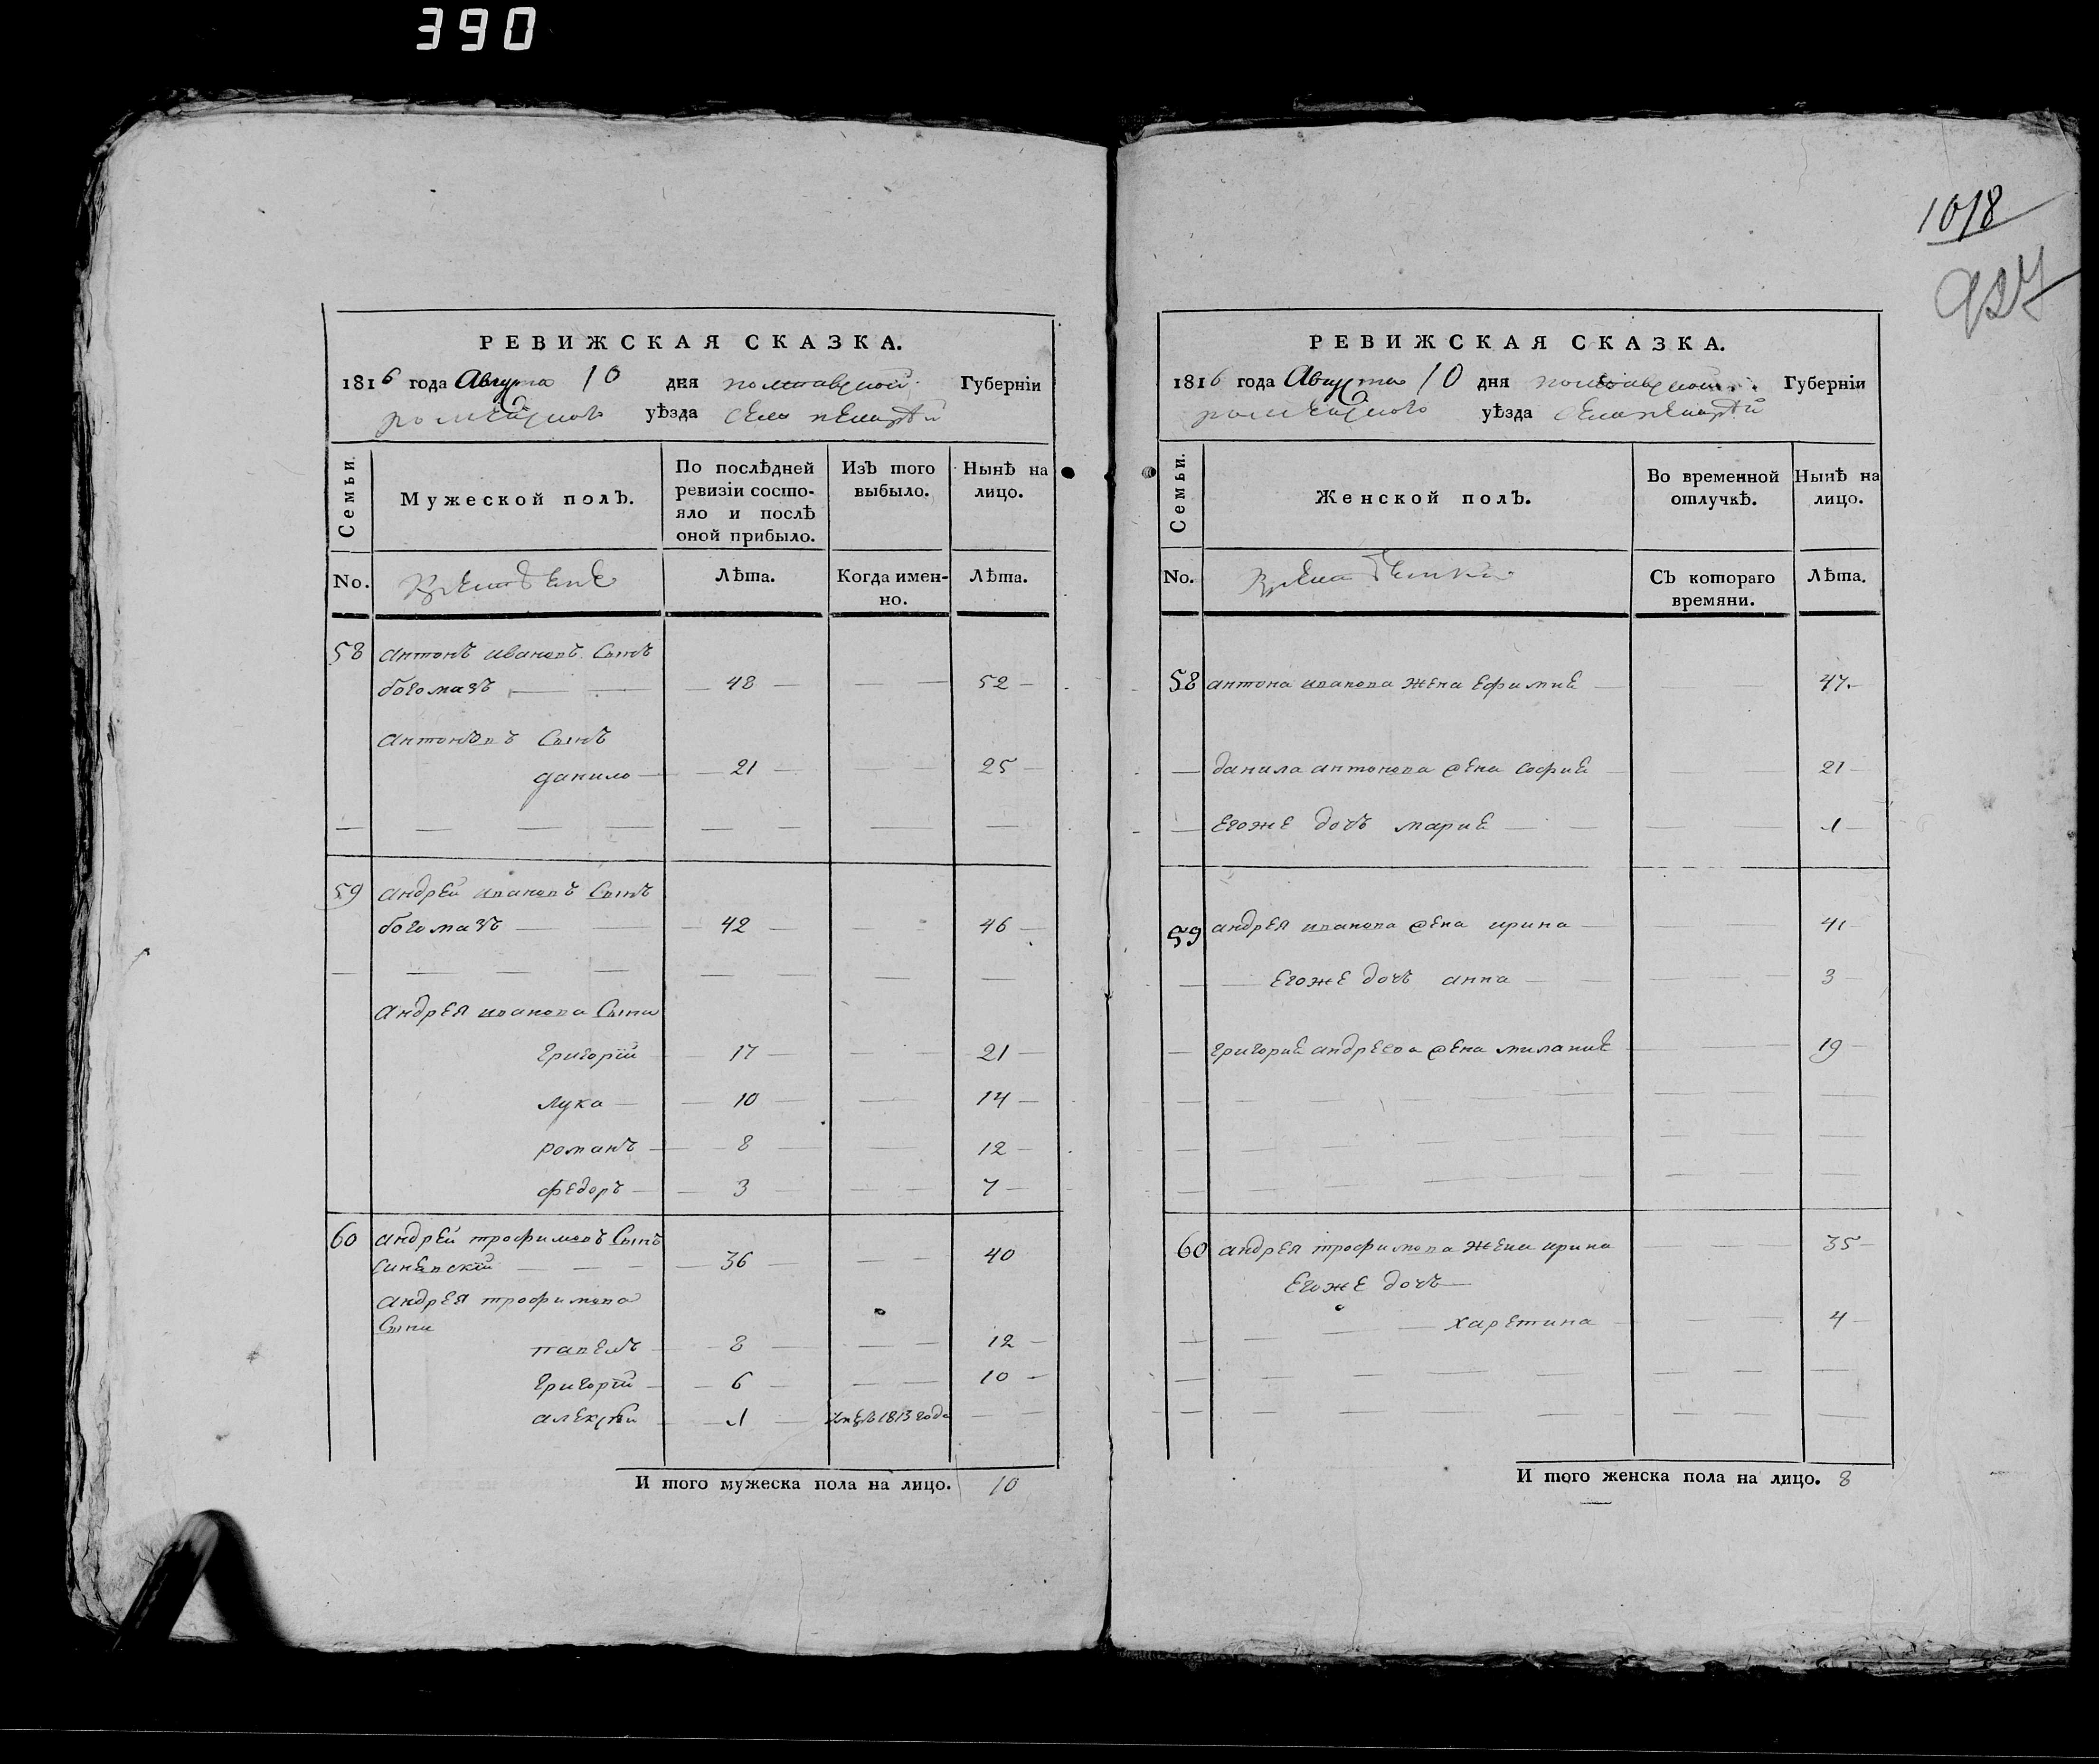 390
РЕВИЖСКАЯ СКАЗКА.
1816 года Августа 10 дня полтавской Губерніи
роменского уѣзда села
Семьи.
Мужеской полъ.
По послѣдней ревизіи состо-
яло и послѣ оной прибыло.
Изъ того выбыло.
Нынѣ на лицо.
No.
Лѣта.
Когда имен-
но.
Лѣта.
58 антонъ ивановъ Сынъ
богомазъ 48 52
антоновъ Сынъ
данило 21 25
59 андрей ивановъ Сынъ
богомазъ 42 46
андрея иванова Сыны
григорій 17 21
лука 10 14
романъ 8 12
федоръ 3 7
60 андрей трофимовъ Сынъ
36 40
андрея трофимова
Сыны
павелъ 8 12
григорій 6 10
алексѣй 1 1813 года
И того мужеска пола на лицо. 10
1018
927
РЕВИЖСКАЯ СКАЗКА.
1816 года Августа 10 дня полтавской Губерніи
роменского уѣзда села
Семьи.
Женской полъ.
Во временной отлучкѣ.
Нынѣ на лицо.
No.
Съ котораго времяни.
Лѣта.
58 антона иванова жена ефимиѣ 47
данила антонова жена софиѣ 21
егоже дочъ мариѣ 1
59 андрея иванова жена ирина 41
егоже дочъ анна 3
григориѣ андреева жена миланиѣ 19
60 андрея трофимова жена ирина 35
егоже дочъ
харетина 4
И того женска пола на лицо. 8